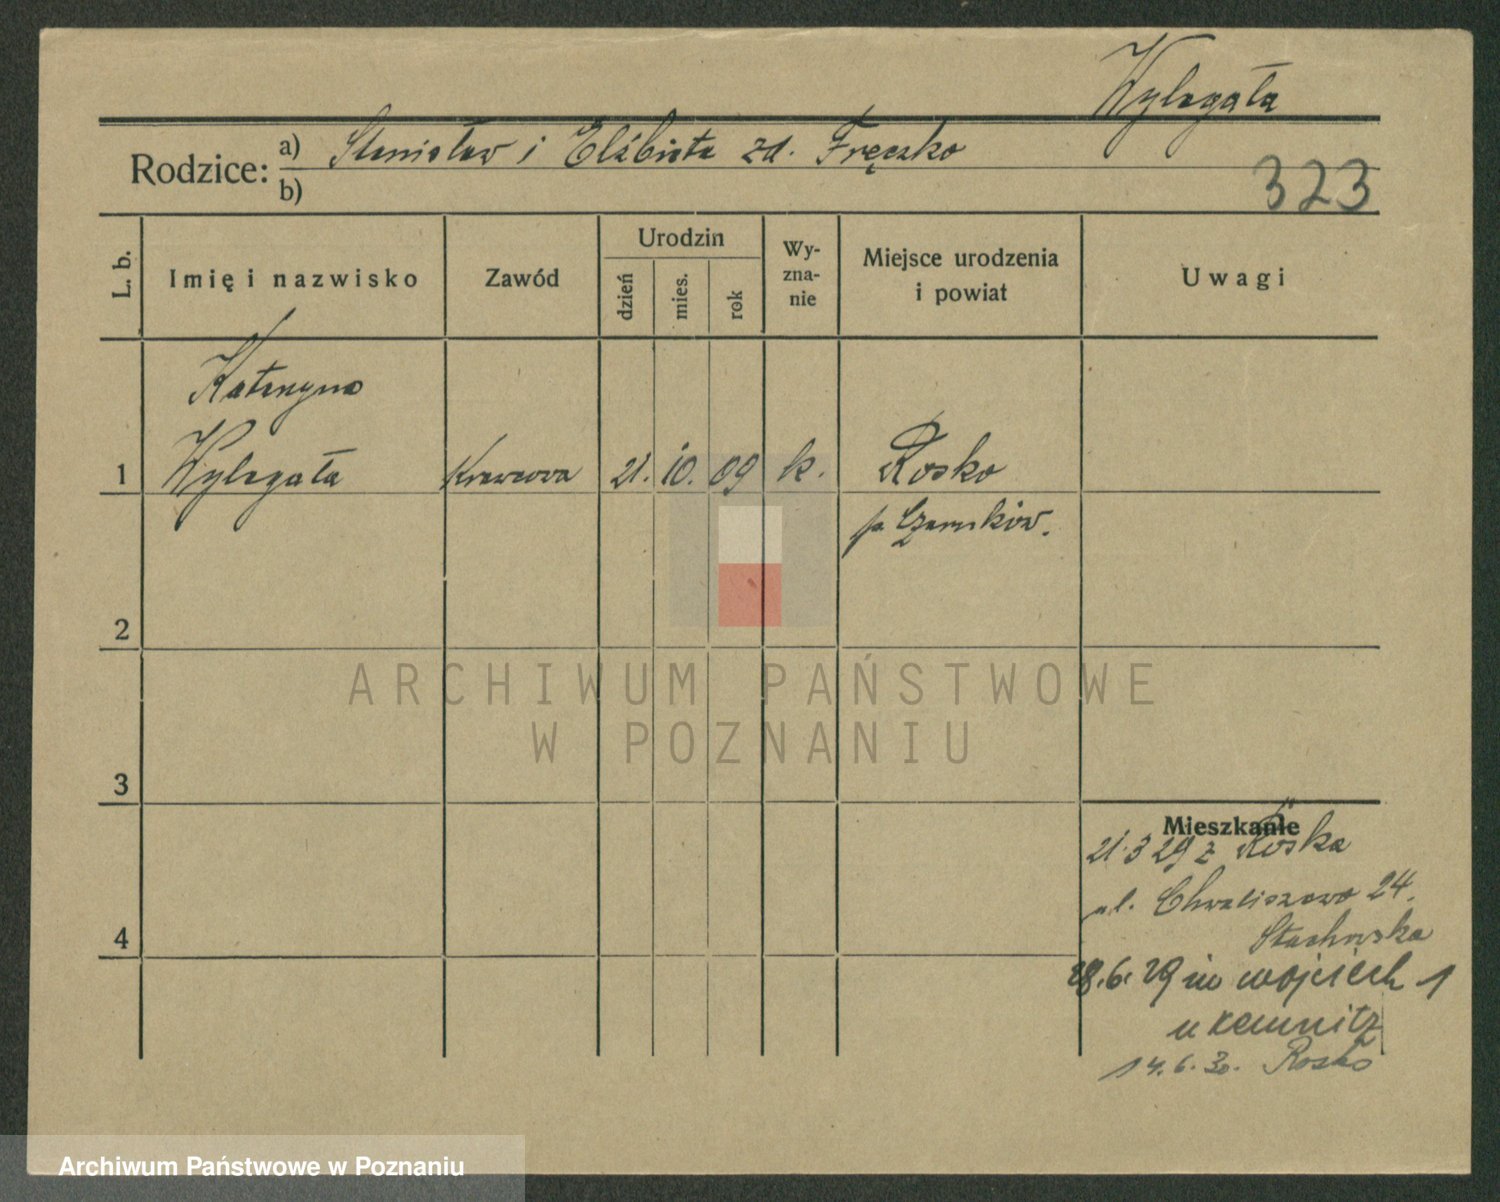 Wylegała
Rodzice: a) Stanisław i Elżbieta zd. Fręczko
b)
323
L. b.
Imię i nazwisko
Zawód
Urodzin
dzień
mies.
rok
Wy-
zna-
nie
Miejsce urodzenia
i powiat
Uwagi
Katarzyna
1 Wylegała Krawcowa 21. 10. 09 k. Rosko
p. Czarnków.
2
3
4
Mieszkanie
21.3 29 z Roska
ul. Chwaliszewo 24.
Stachowska
28.6.29 św wojciech 1
u Kemnitz
14.6.30. Rosko
ARCHIWUM PAŃSTWOWE
W POZNANIU
Archiwum Państwowe w Poznaniu